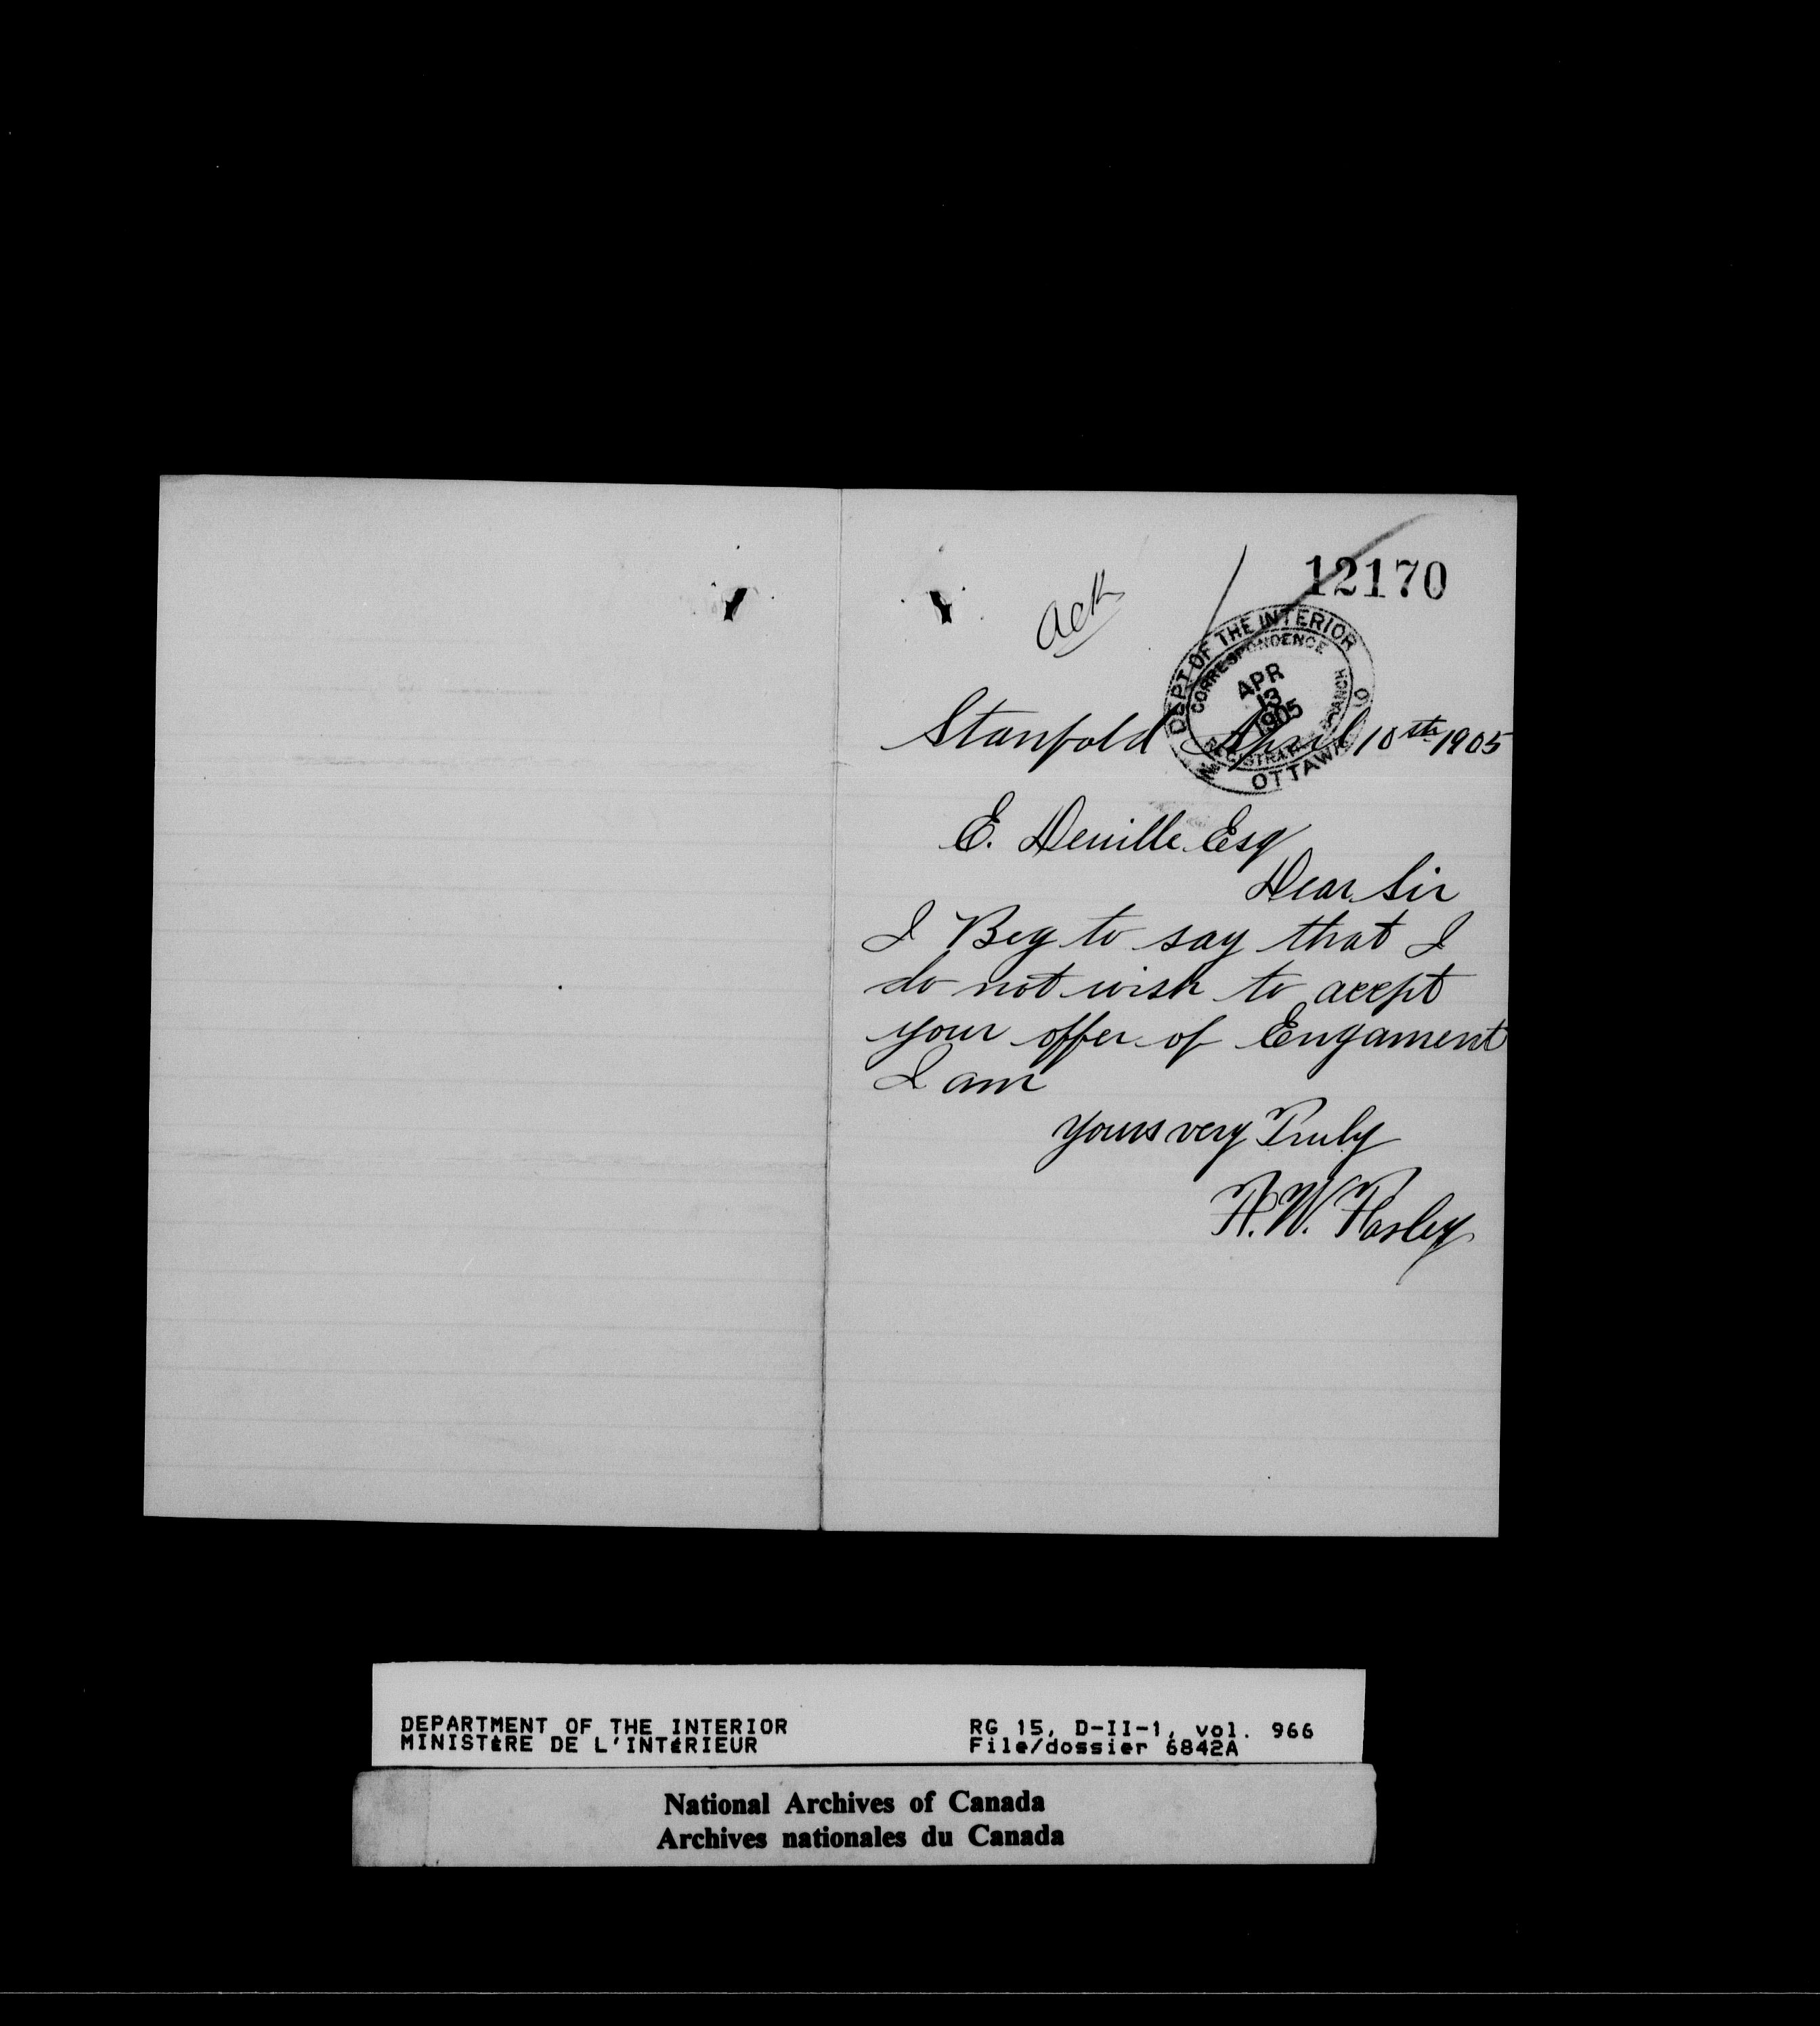 12170
Ack
DEPT OF THE INTERIOR
CORRESPONDENCE
APR
13
1905
REGISTRATION BRANCH
OTTAWA
Stanfold April 10th 1905
E. Deville Esq
Dear Sir
I Beg to say that I
do not wish to acept
your offer of Engament
I am
yours very Truly
W.
DEPARTMENT OF THE INTERIOR
MINISTÈRE DE L'INTÉRIEUR
RG 15, D-II-1, vol. 966
File/dossier 6842A
National Archives of Canada
Archives nationales du Canada